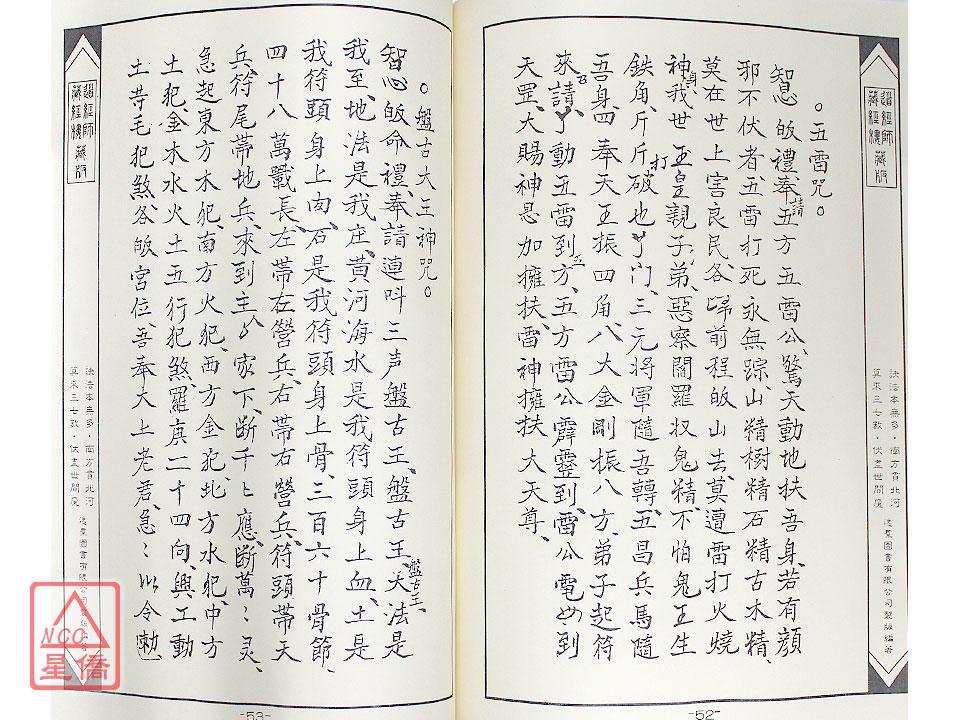 。五雷咒。
智心皈禮、奉請五方五雷公、驚天動地扶吾身、若有顏
邪不伏者、五雷打死永無踪、山精樹精石精古木精、
莫在世上害良民、各歸前程皈山去、莫遭雷打火燒
神、真我世玉皇親子弟、惡察閻羅収鬼精、不怕鬼王生
鉄角、斤斤打破也丫門、三元将軍隨吾轉、五昌兵馬隨
吾身、四奉天王振四角、八大金剛振八方、弟子起符
來請、丫動五雷到五方、五方雷公霹靂到、雷公電母到
天罡、大賜神恩加擁扶、雷神擁扶大天尊、
-52-
。盤古大王神咒。
智心皈命禮、奉請連叫三声盤古王、盤古王、盤古王、天法是
我至、地法是我庄、黄河海水是我符頭身上血、土是
我符頭身上肉、石是我符頭身上骨、三百六十骨節、
四十八萬戰長、左帶左營兵、右帶右營兵、符頭帶天
兵、符尾帶地兵、來到主人家下、断千〻應、断萬〻灵、
急起東方木犯、南方火犯、西方金犯、北方水犯、中方
土犯、金木水火土五行犯煞、羅庚二十四向、興工動
土、芽毛犯煞、各皈宮位、吾奉大上老君、急〻如令勅
-53-
道經師
藏經樓藏版
訣法本無多・南方貫北河
算來三七数・伏盡世間魔
逸羣圖書有限公司製版編著
NCC
星僑